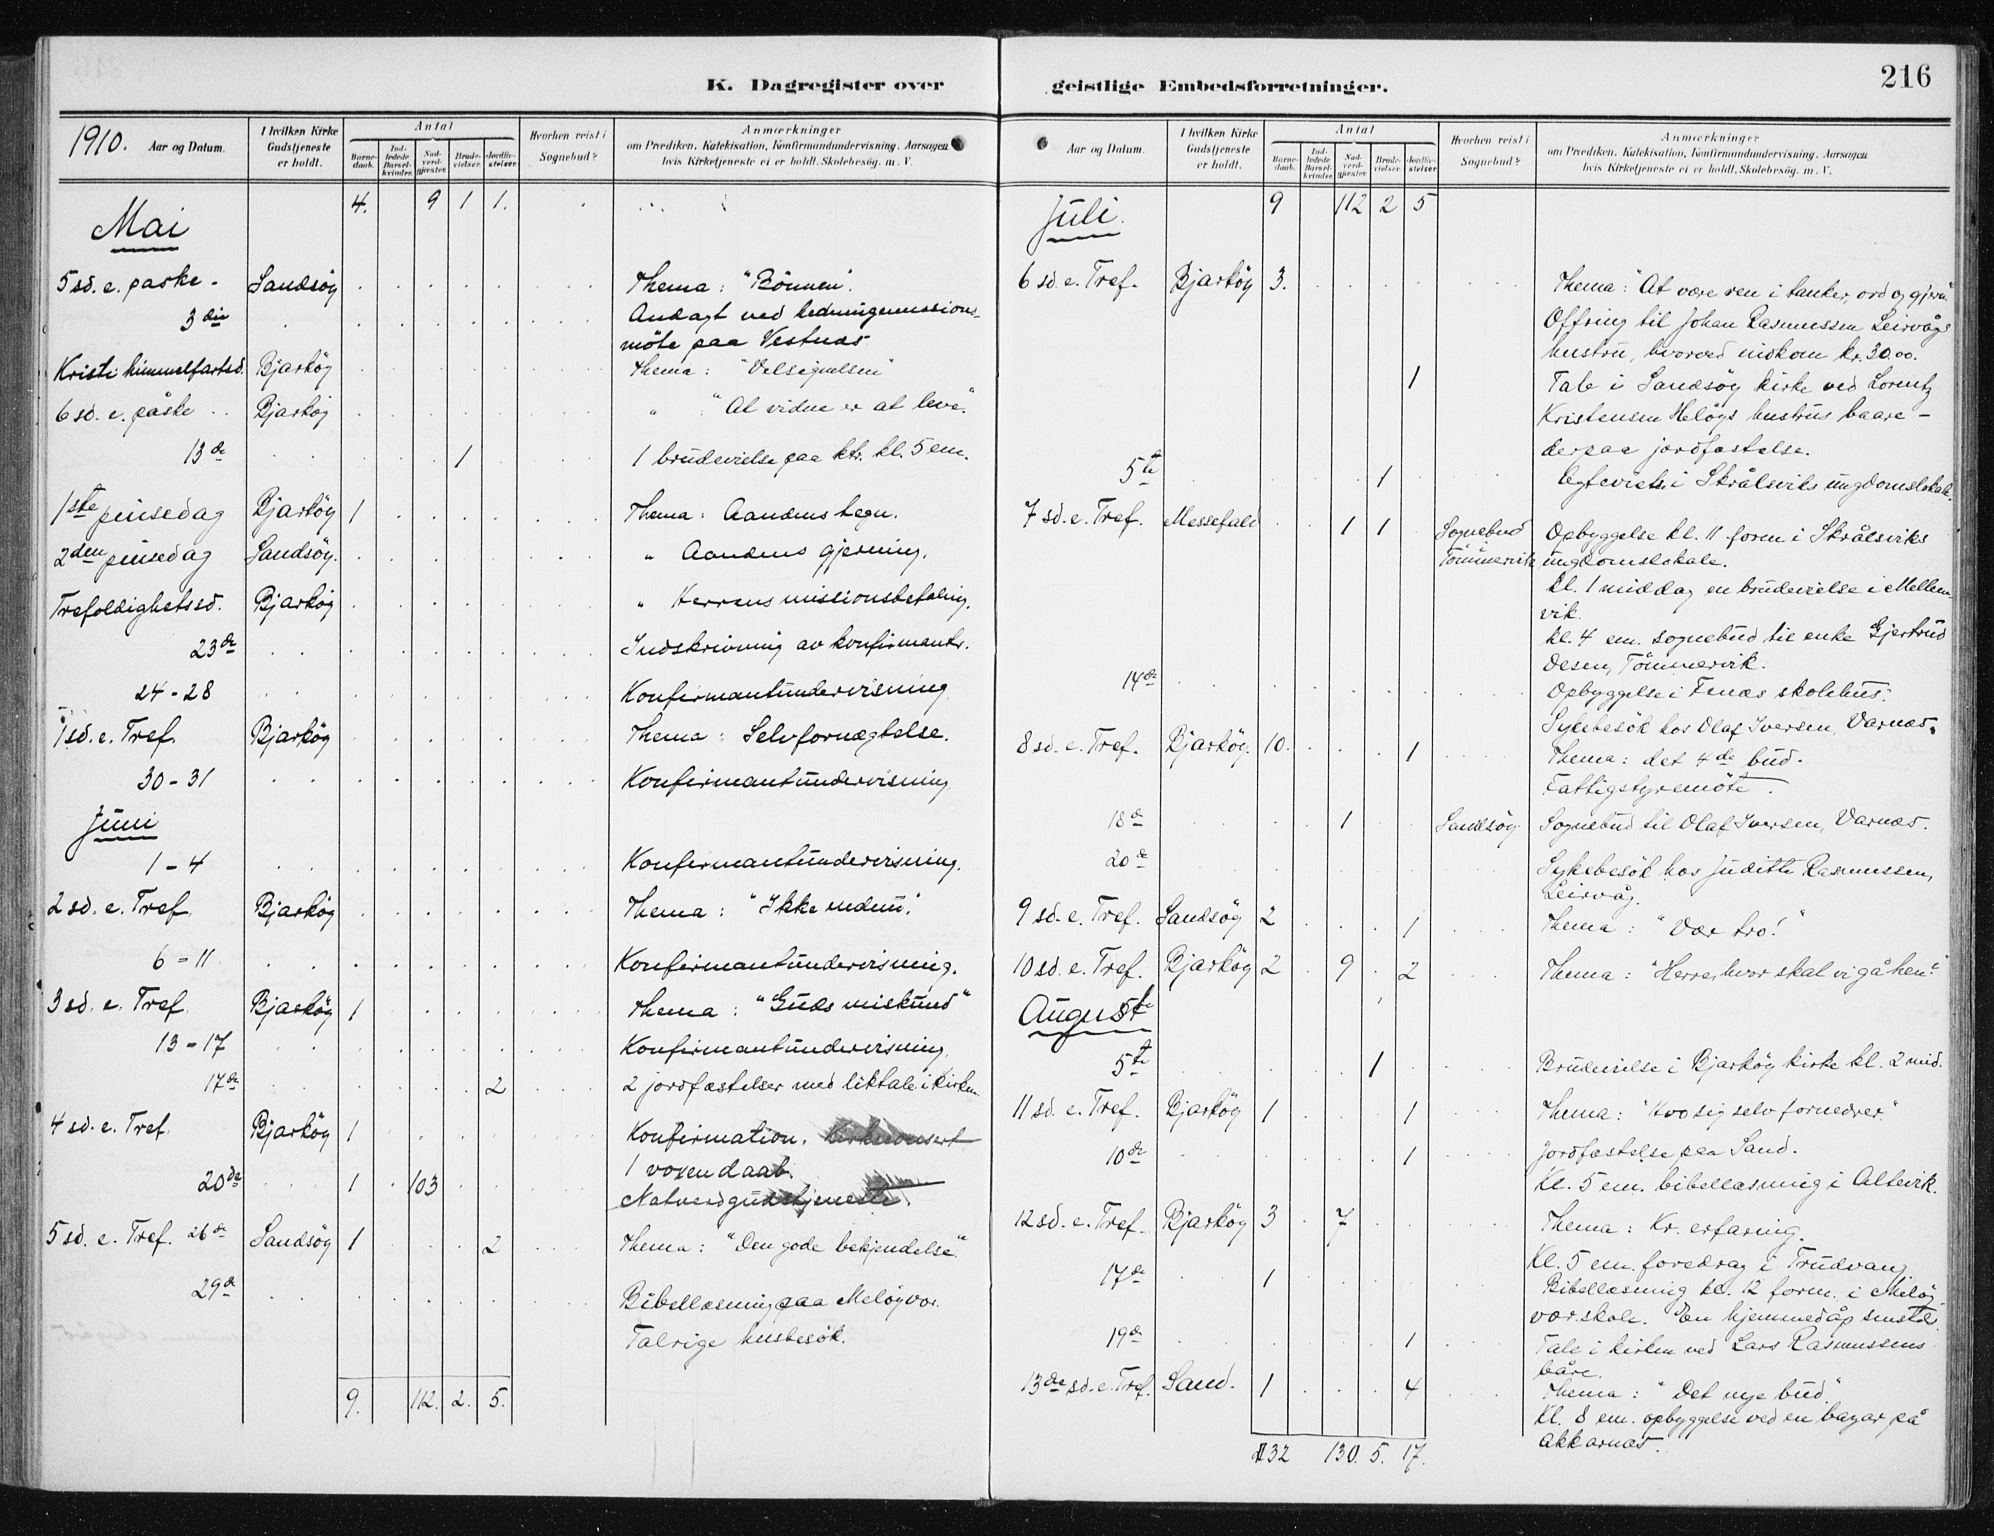 K. Dagregister over
1910. Aar og Datum.
I hvilken Kirke Gudstjeneste er holdt.
Antal
Barne-daab.
Ind-ledede Barsel-kvinder.
Nad-verd-gjester.
Brude-vielser.
Jordfæ-stelser.
Hvorhen reist i Sognebud?
Anmærkninger
om Prædiken, Katekisation, Konfirmandundervisning, Aarsagen
hvis Kirketjeneste ei er holdt, Skolebesøg, m. V.
4. 9 1 1.
Mai
5 sd. e. paske. Sandsög Thema: "Bönnen".
3 die Andagt ved hedningemissions-
möte paa Vestnæs
Kristi himmelfartsd. Bjarköy Thema: "Velsignelsen"
6 sd. e. påske Bjarköy " "At vidne er at leve".
13 de 1 1 brudevielse paa ktr. kl. 5 em.
1ste pinsedag Bjarköy 1 Thema: Aandens tegn.
2den pinsedag Sandsöy. " Aandens gjerning.
Trefoldighetssd. Bjarköy " Herrens missionsbefaling.
23 de Indskrivning av konfirmantr.
24-28 Konfirmantundervisning
1 sd. e. Tref. Bjarköy Thema: Selvfornægtelse.
30-31 Konfirmantundervisning
Juni
1-4 Konfirmantundervisning.
2 sd. e. Tref. Bjarköy Thema: "Ikke uden".
6-11 Konfirmantundervisning.
3 sd. e. Tref. Bjarköy 1 Thema: "Guds miskund"
13-17 Konfirmantundervisning
17 de 2 2 jordfæstelser med liktale i kirken
4 sd. e. Tref. Bjarköy 1 Konfirmation. Kirkekonsert
1 voxendaab.
20 de 1 103 Natverdgudstjeneste.
5 sd. e. Tref. 26 de Sandsöy 1 2 Thema: "Den gode bekjendelse".
29 de Bibellæsning paa Melöyvær.
Talrige husbesök.
9. 112. 2. 5.
geistlige Embedsforretninger.
216
Aar og Datum.
I hvilken Kirke Gudstjeneste er holdt.
Antal
Barne-daab.
Ind-ledede Barsel-kvinder.
Nad-verd-gjester.
Brude-vielser.
Jordfæ-stelser.
Hvorhen reist i Sognebud?
Anmærkninger
om Prædiken, Katekisation, Konfirmandundervisning, Aarsagen
hvis Kirketjeneste ei er holdt, Skolebesøg, m. V.
9 112 2 5
Juli.
6 sd. e. Tref. Bjarköy 3. Thema: "At være ren i tanker, ord og gjern"
Offring til Johan Rasmussen Leirvågs
hustru, hvorved indkom kr. 30.00.
1 Tale i Sandsöy kirke ved Lorentz
Kristensen Helögs hustrus baare –
derpaa jordfæstelse.
5te 1 Egteviels. i Skrålsviks ungdomslokale.
7 sd. e. Tref. Messefald 1 1 Sognebud Tömmervik Opbyggelse kl. 11 form i Skrålsviks
ungdomslokale.
kl. 1 middag en brudevielse i Mellem-
vik.
kl. 4 em. sognebud til enke Gjertrud
Desen, Tömmervik.
14 de Opbyggelse i Fenæs skolehus.
Sykebesök hos Olaf Iversen, Varnæs.
8 sd. e. Tref. Bjarköy. 10. 1 Thema: det 4de bud.
Fattigstyremöte.
18 de 1 Sandsöy Sognebud til Olaf Iversen, Varnæs.
20 de Sykebesök hos Juditte Rasmussen,
Leirvåg.
9 sd. e. Tref. Sandsöy 2 1 Thema: "Vær tro!"
10 sd. e. Tref. Bjarköy 2 9 2 Thema: "Herre, hvor skal vi gå hen?"
August
5te 1 Brudevielse i Bjarköy kirke kl. 2 mid.
11 sd. e. Tref. Bjarköy 1 1 Thema: "Hvo sig selv fornedrer."
10 de 1 Jordfæstelse paa Sand.
Kl. 5 em. bibellæsning i Altevik.
12 sd. e. Tref. Bjarköy 3 7 Thema: Kr. erfaring.
Kl. 5 em. foredrag i Trudvang
17 de 1 Bibellæsning kl. 12 form. i Melöy-
værskole. En hjemmedåp
19 de 1 Tale i kirken ved Lars Rasmussens
båre.
13 de sd. e. Tref. Sand. 1 4 Thema: "Det nye bud".
Kl. 8 em. opbyggelse ved en bazar på
Akkarnæs.
32 130. 5. 17.